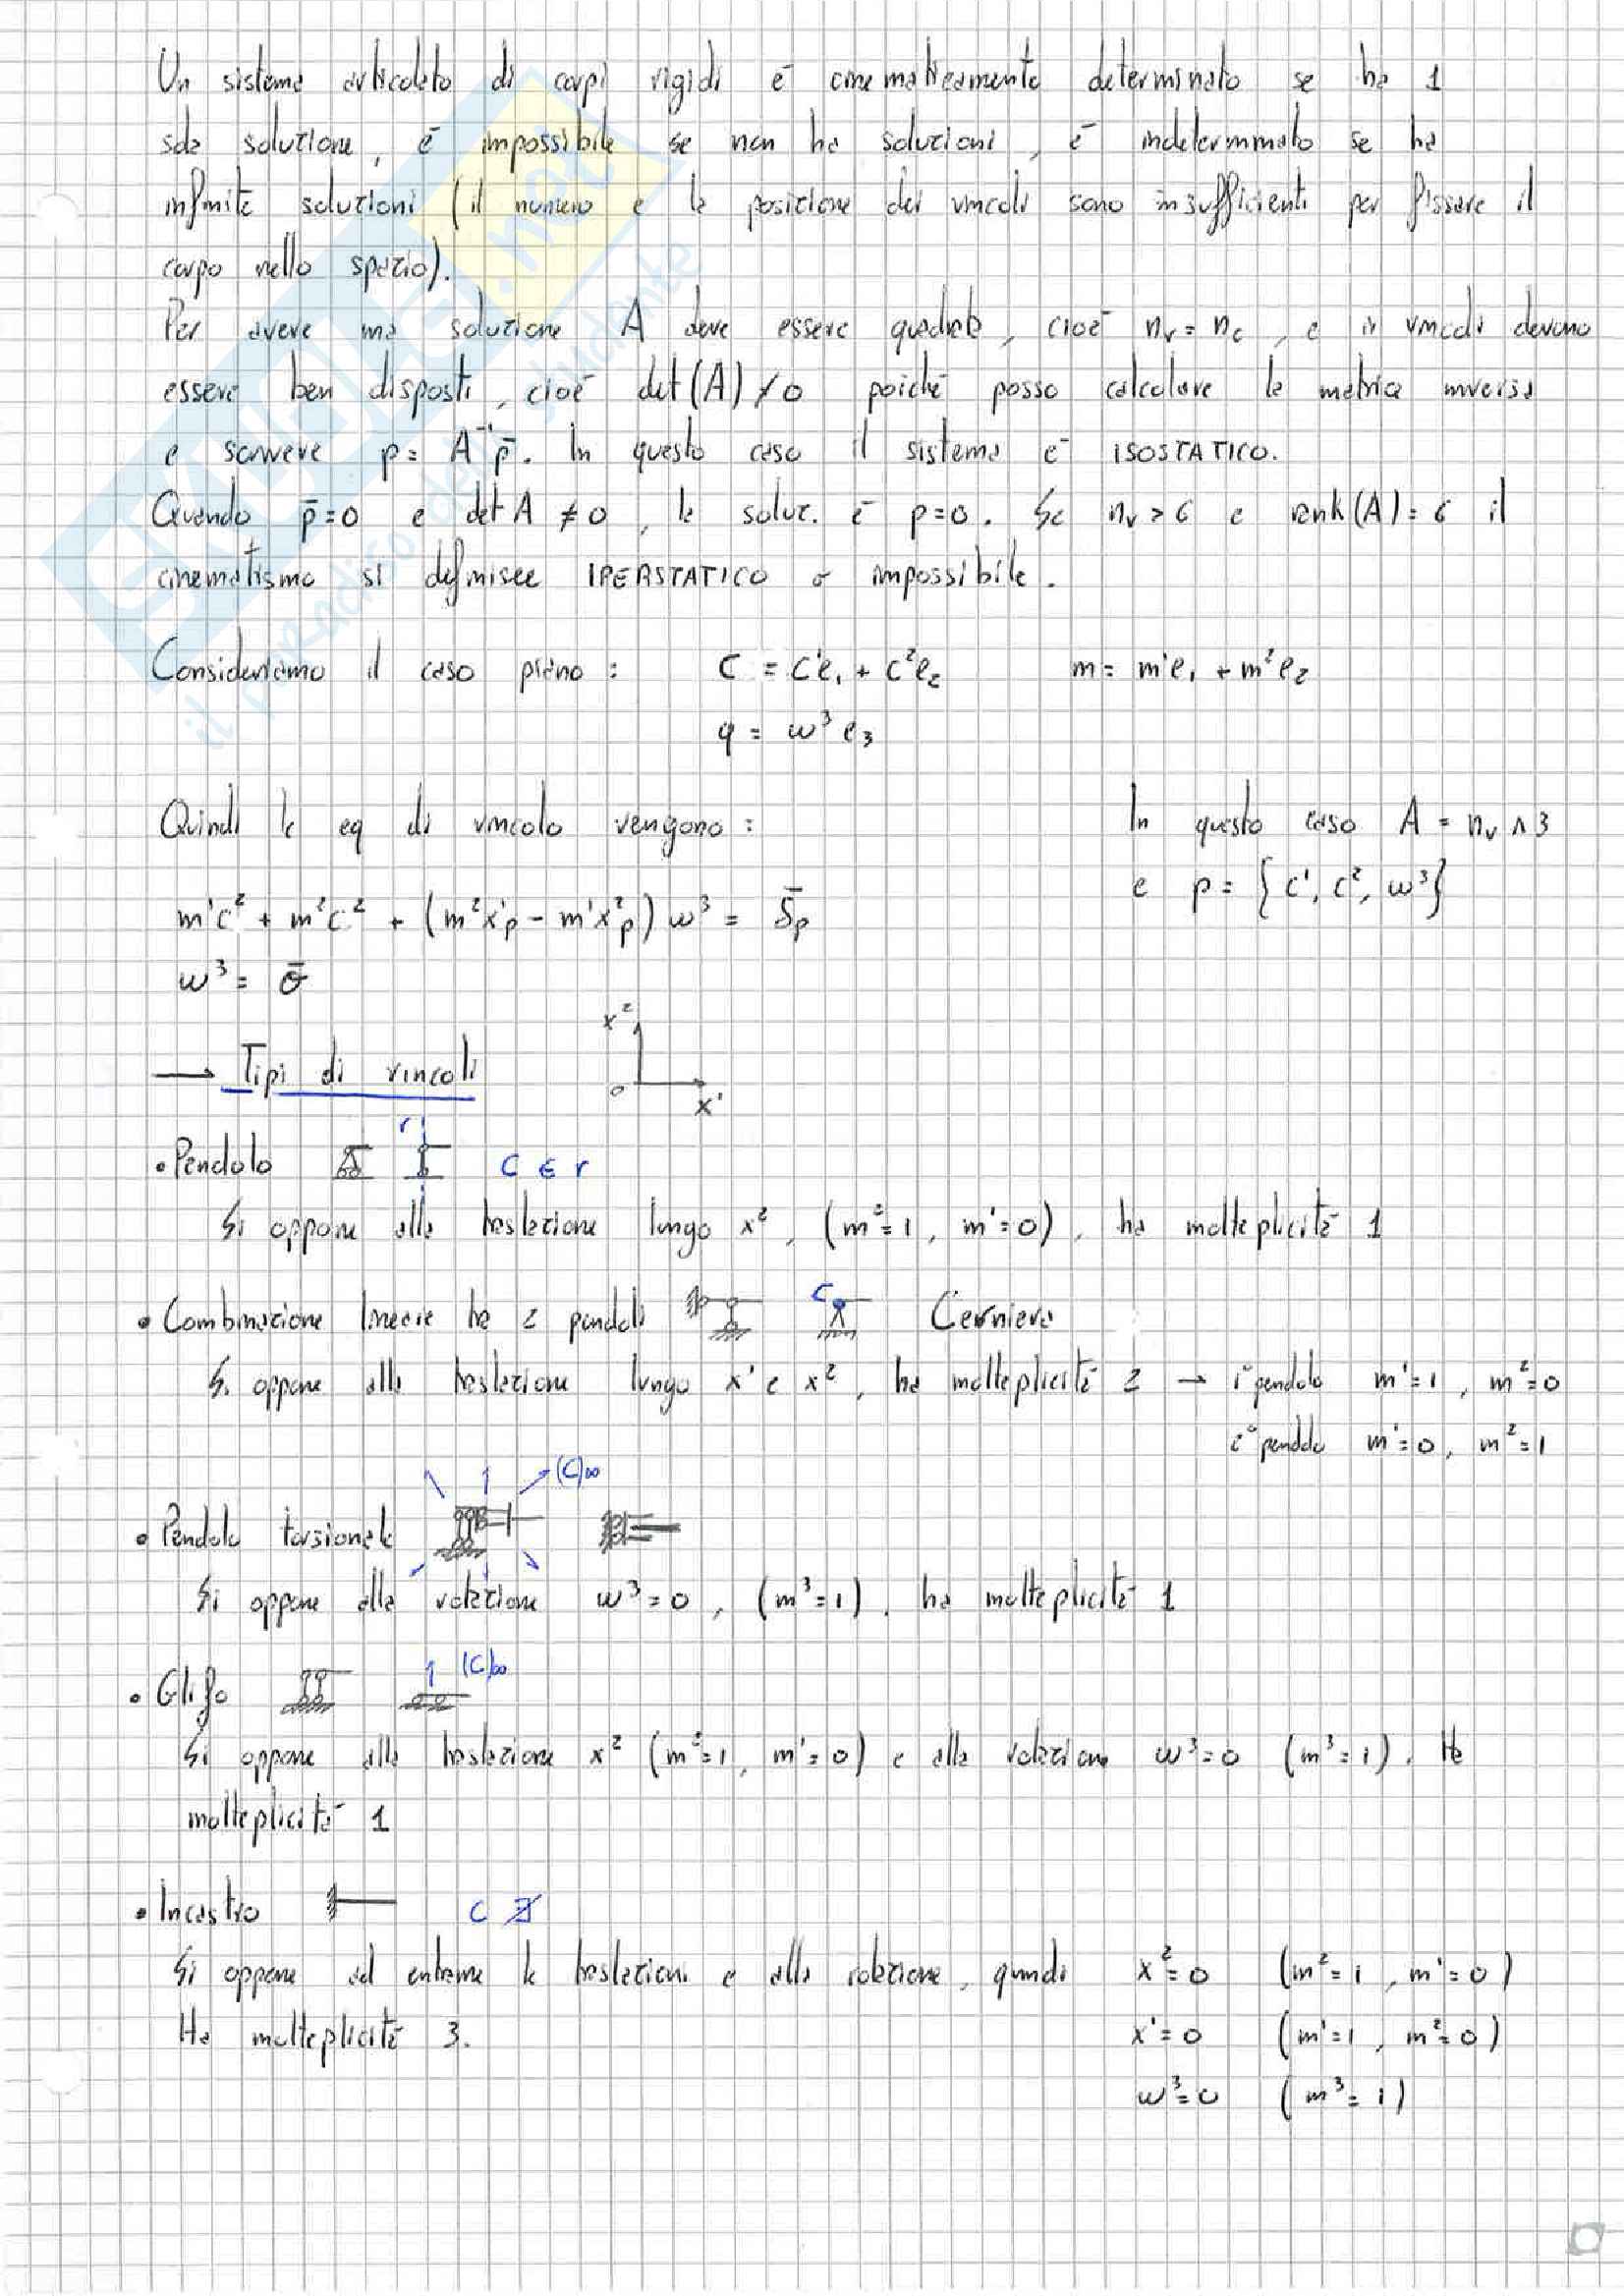 Un sistema articolato di corpi rigidi è cinematicamente determinato se ha 1
sola soluzione, è impossibile se non ha soluzioni, è indeterminato se ha
infinite soluzioni (il numero e la posizione dei vincoli sono insufficienti per fissare il
corpo nello spazio).
Per avere una soluzione A deve essere quadrata, cioè nv = nc, e i vincoli devono
essere ben disposti, cioè det(A) ≠ 0 poiché posso calcolare la matrice inversa
e scrivere p = A⁻¹ p̄. In questo caso il sistema è ISOSTATICO.
Quando p̄=0 e det A ≠ 0, la soluz. è p=0. Se nv > 6 e rank(A) = 6 il
cinematismo si definisce IPERSTATICO o impossibile.
Consideriamo il caso piano : C = C¹e₁ + C²e₂ m = m¹e₁ + m²e₂
q = w³ e₃
Quindi le eq di vincolo vengono : In questo caso A = nv ∧ 3
e p = {C¹, C², w³}
m¹c² + m²c² + (m²x¹p - m¹x²p) w³ = S̄p
w³ = σ̄
x²
→ Tipi di vincoli
o x¹
• Pendolo r C ∈ r
Si oppone alla traslazione lungo x², (m²=1, m¹=0), ha molteplicità 1
• Combinazione lineare ha 2 pendoli C Cerniera
Si oppone alla traslazione lungo x¹ e x², ha molteplicità 2 → 1° pendolo m¹=1, m²=0
2° pendolo m¹=0, m²=1
(C)∞
• Pendolo torsionale
Si oppone alla rotazione w³=0, (m³=1), ha molteplicità 1
• Glifo (C)∞
Si oppone alla traslazione x² (m²=1, m¹=0) e alla rotazione w³=0 (m³=1). Ha
molteplicità 1
• Incastro C ∄
Si oppone ad entrambe le traslazioni e alla rotazione, quindi x²=0 (m²=1, m¹=0)
Ha molteplicità 3. x¹=0 (m¹=1, m²=0)
w³=0 (m³=1)
SKUOLA.net
il paradiso dello studente